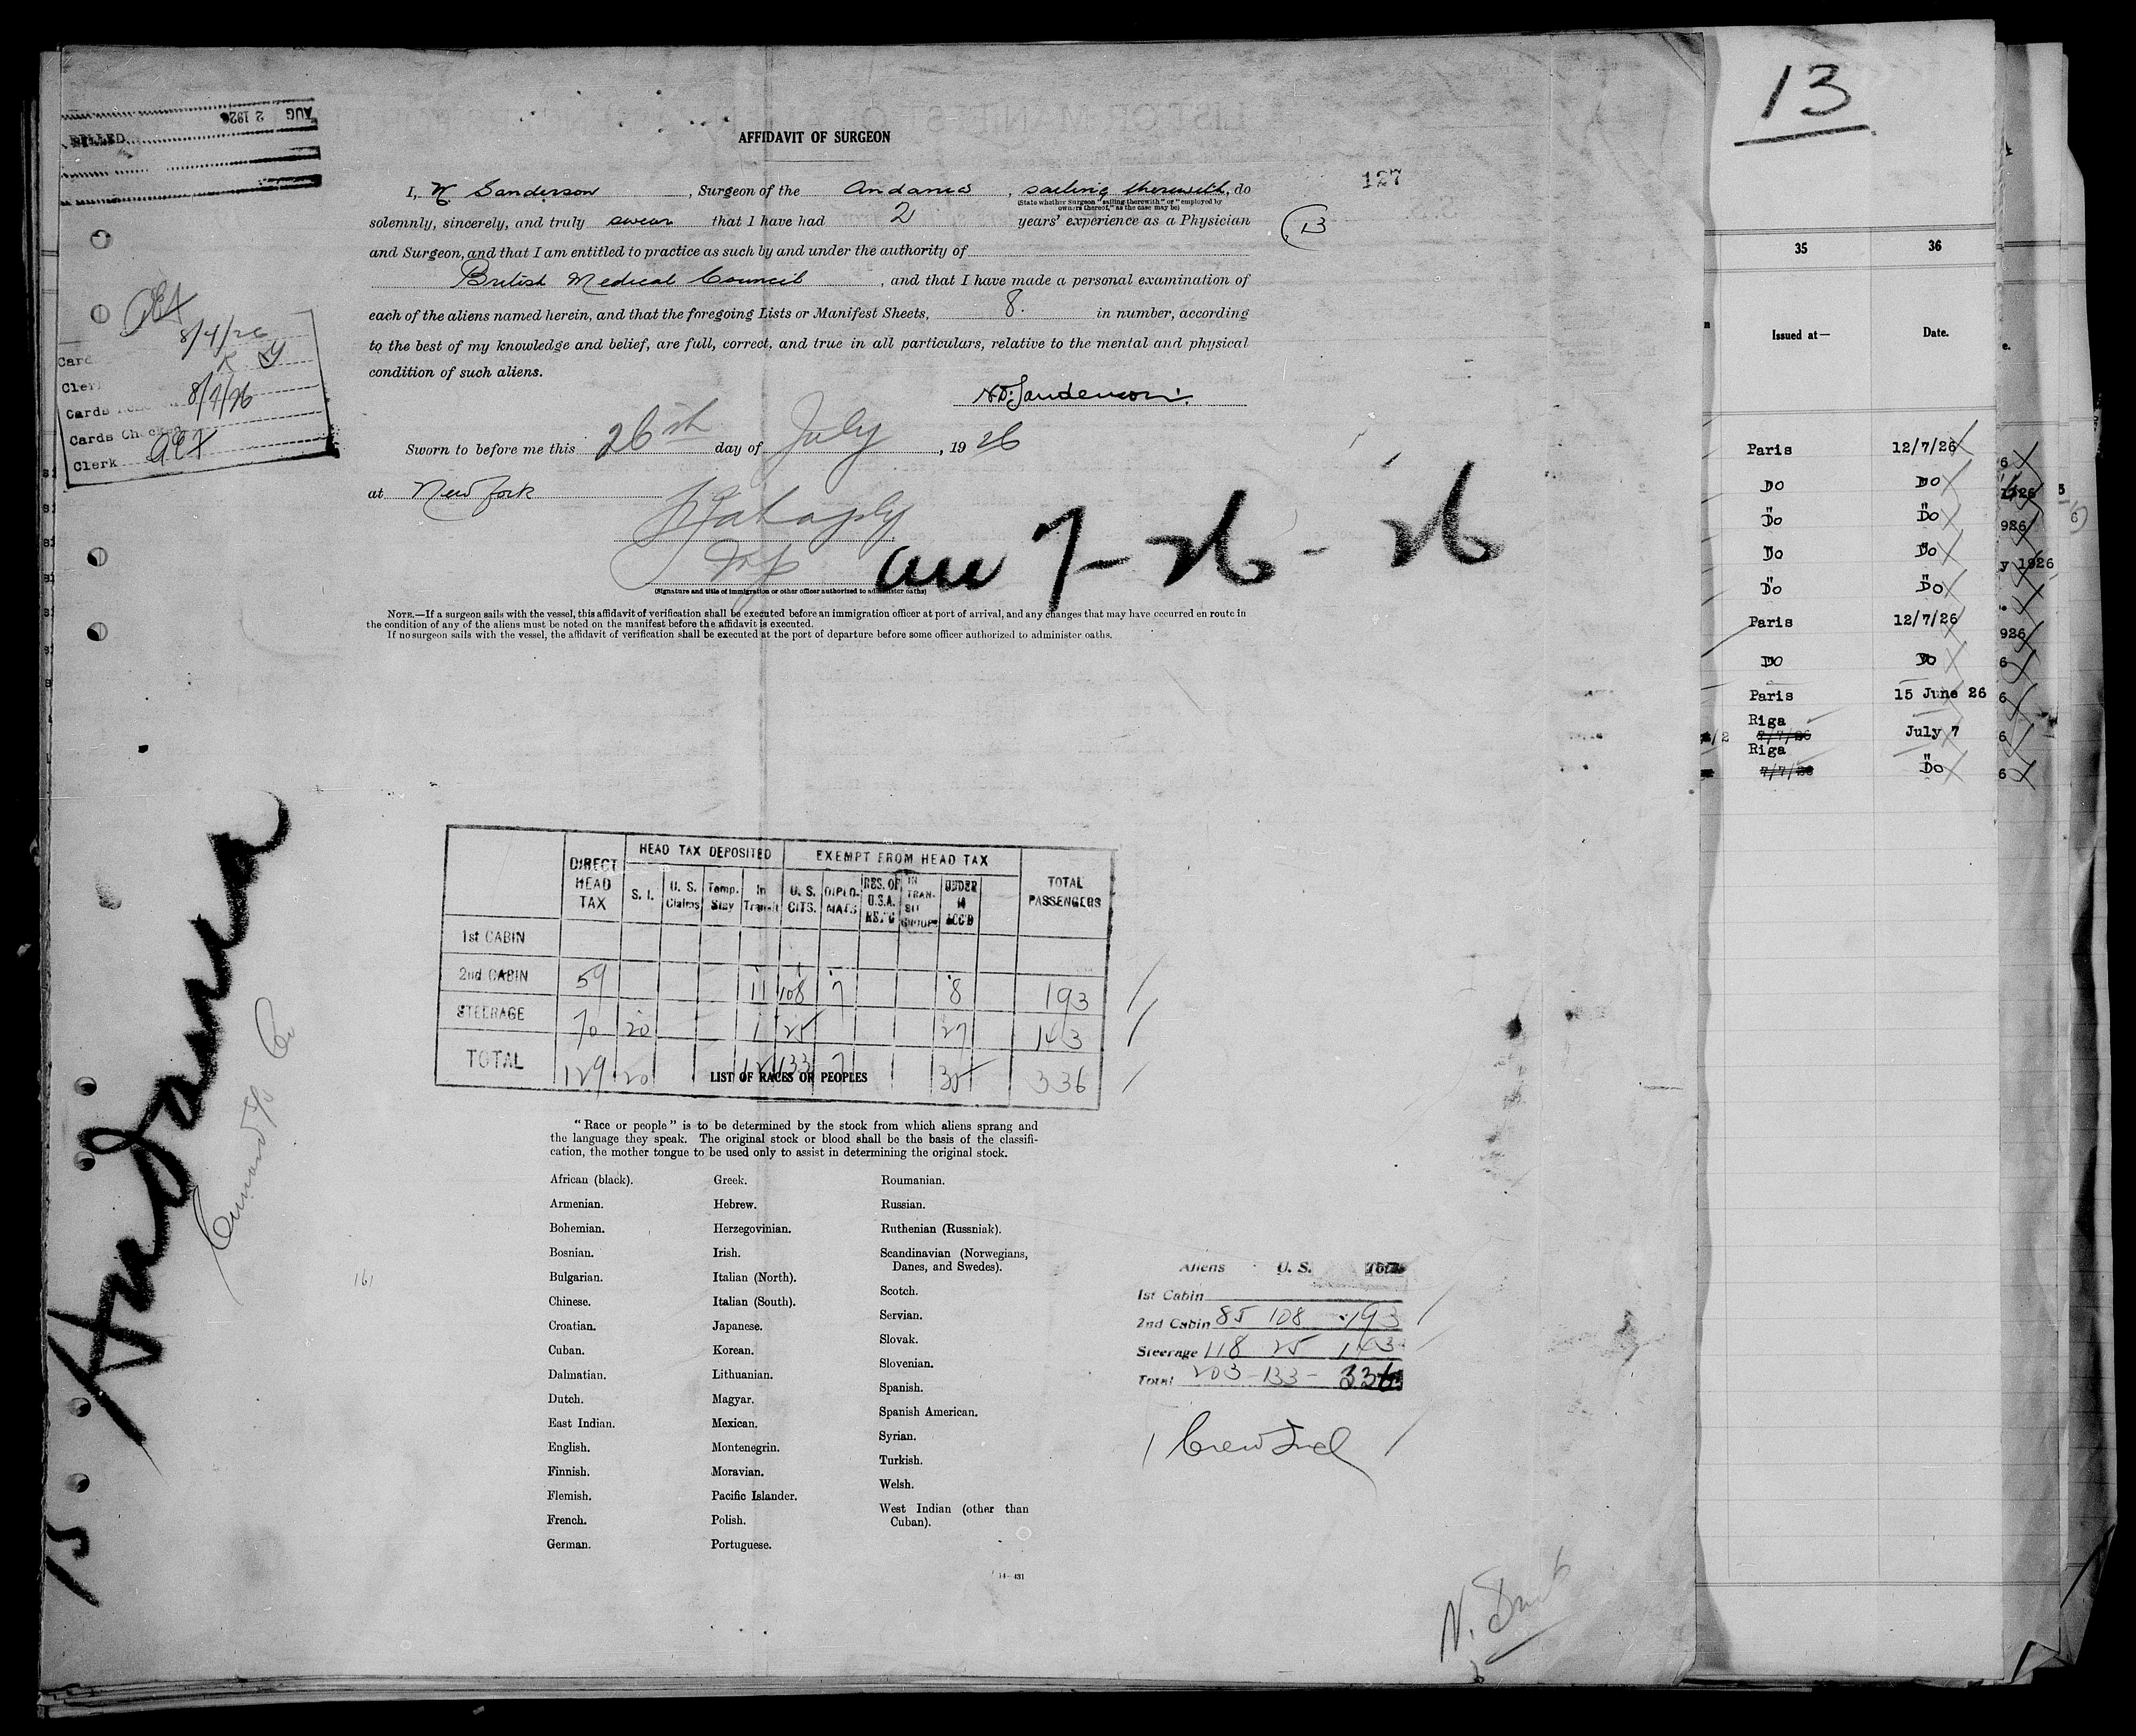 13
AUG 2 1926
BILLED
AFFIDAVIT OF SURGEON
127
I, W Sanderson, Surgeon of the Andania, sailing therewith, do
(State whether Surgeon "sailing therewith" or "employed by
owners thereof," as the case may be)
solemnly, sincerely, and truly swear that I have had 2 years' experience as a Physician
13
and Surgeon, and that I am entitled to practice as such by and under the authority of
British Medical Council, and that I have made a personal examination of
each of the aliens named herein, and that the foregoing Lists or Manifest Sheets, 8. in number, according
to the best of my knowledge and belief, are full, correct, and true in all particulars, relative to the mental and physical
condition of such aliens.
Sanderson.
Sworn to before me this 26th day of July, 1926
at New York
arr 7-26-26
(Signature and title of immigration or other officer authorized to administer oaths)
NOTE.—If a surgeon sails with the vessel, this affidavit of verification shall be executed before an immigration officer at port of arrival, and any changes that may have occurred en route in
the condition of any of the aliens must be noted on the manifest before the affidavit is executed.
If no surgeon sails with the vessel, the affidavit of verification shall be executed at the port of departure before some officer authorized to administer oaths.
8/4/26
Card
Cler
Cards 8/7/26
Cards Checked
Clerk
35 36
Issued at— Date.
Paris 12/7/26
Do Do
Do Do
Do Do
Do Do
Paris 12/7/26
Do Do
Paris 15 June 26
Riga
7/7/26 July 7
Riga
7/7/26 Do
Andania
Cunard S/S Co
15
HEAD TAX DEPOSITED EXEMPT FROM HEAD TAX
DIRECT HEAD TAX S. I. U. S. Claims Temp. Stay In Transit U. S. CITS. DIPLOMATS RES. OF U.S.A. RET'G IN TRANSIT GROUPS UNDER 16 ACC'D TOTAL PASSENGERS
1st CABIN
2nd CABIN 59 11 108 7 8 193
STEERAGE 70 20 1 25 27 143
TOTAL 129 20 12 133 7 35 336
LIST OF RACES OR PEOPLES
"Race or people" is to be determined by the stock from which aliens sprang and
the language they speak. The original stock or blood shall be the basis of the classifi-
cation, the mother tongue to be used only to assist in determining the original stock.
African (black).
Armenian.
Bohemian.
Bosnian.
Bulgarian.
Chinese.
Croatian.
Cuban.
Dalmatian.
Dutch.
East Indian.
English.
Finnish.
Flemish.
French.
German.
Greek.
Hebrew.
Herzegovinian.
Irish.
Italian (North).
Italian (South).
Japanese.
Korean.
Lithuanian.
Magyar.
Mexican.
Montenegrin.
Moravian.
Pacific Islander.
Polish.
Portuguese.
Roumanian.
Russian.
Ruthenian (Russniak).
Scandinavian (Norwegians,
Danes, and Swedes).
Scotch.
Servian.
Slovak.
Slovenian.
Spanish.
Spanish American.
Syrian.
Turkish.
Welsh.
West Indian (other than
Cuban).
14—431
161
Aliens U. S. Total
1st Cabin
2nd Cabin 85 108 193
Steerage 118 25 143
Total 203-133-336
Crew Incl